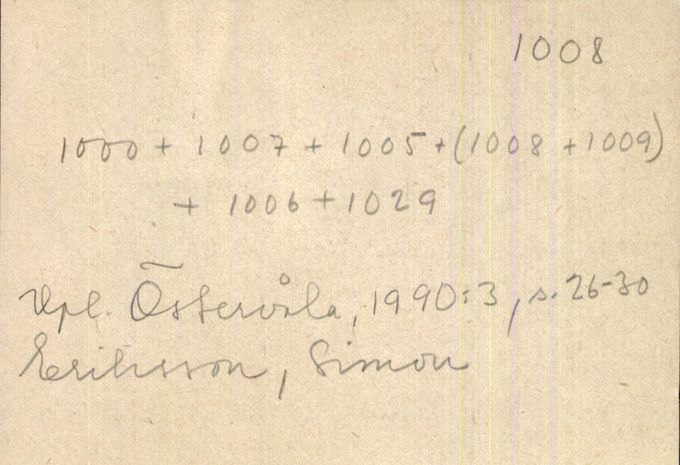 1008
1000 + 1007 + 1005 + (1008 + 1009)
+ 1006 + 1029
Upl. Östervåla, 1990:3, s. 26-30
Eriksson, Simon